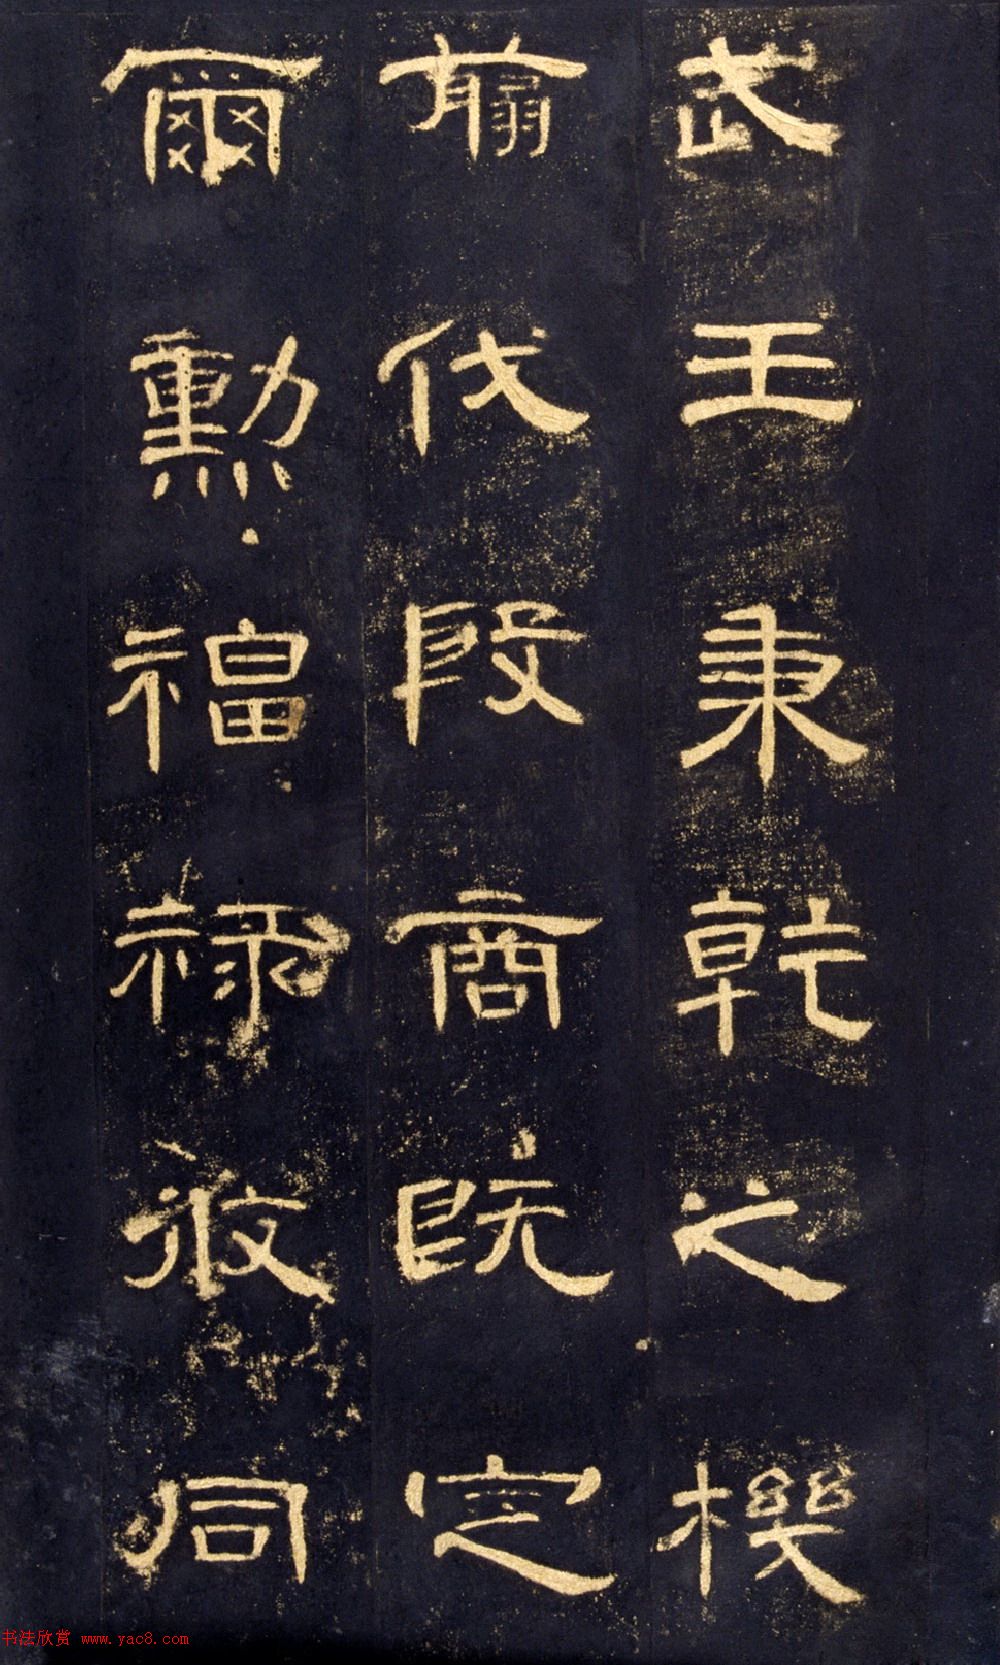 武王秉乾之機
翦伐殷商既定
爾勳福祿攸同
书法欣赏 www.yac8.com